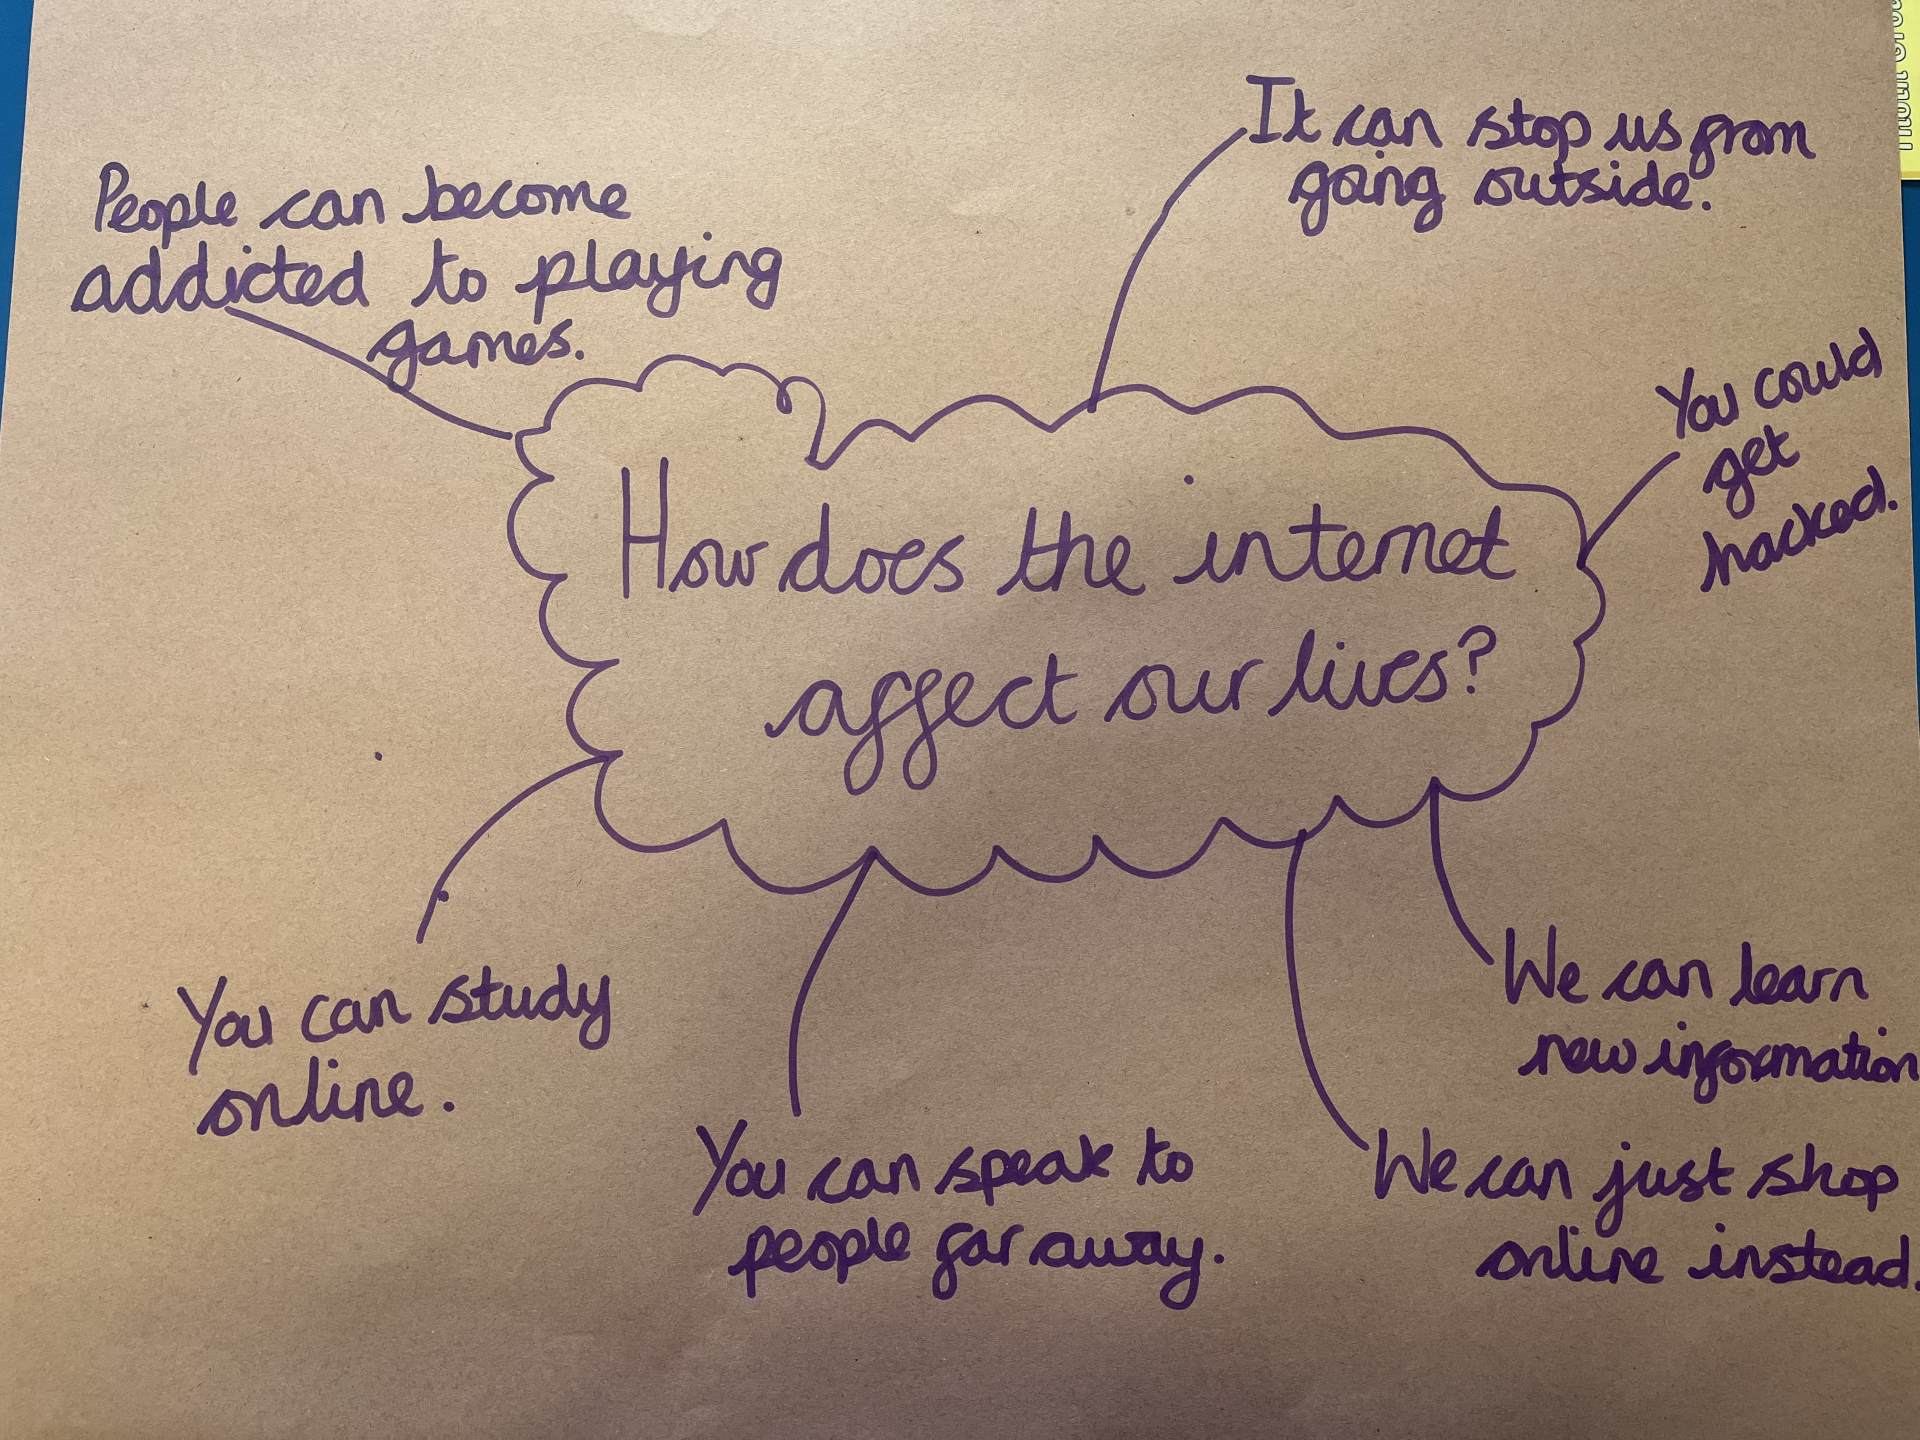 People can become
addicted to playing
games.
It can stop us from
going outside.
You could
get
hacked.
How does the internet
affect our lives?
You can study
online.
You can speak to
people far away.
We can learn
new information
We can just shop
online instead.